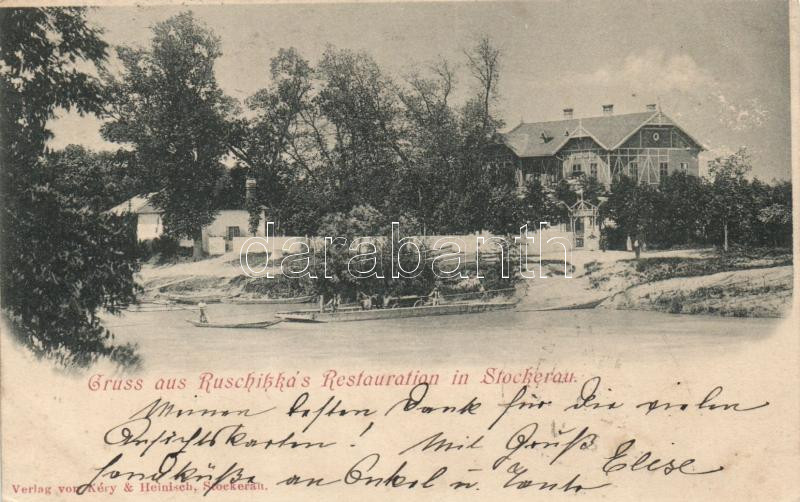 darabanth
Gruss aus Ruschitzka's Restauration in Stockerau.
Meinen besten Dank für die vielen
Ansichtskarten! Mit Gruß Elise
Handküße an Onkel u. Tante
Verlag von Kéry & Heinisch, Stockerau.